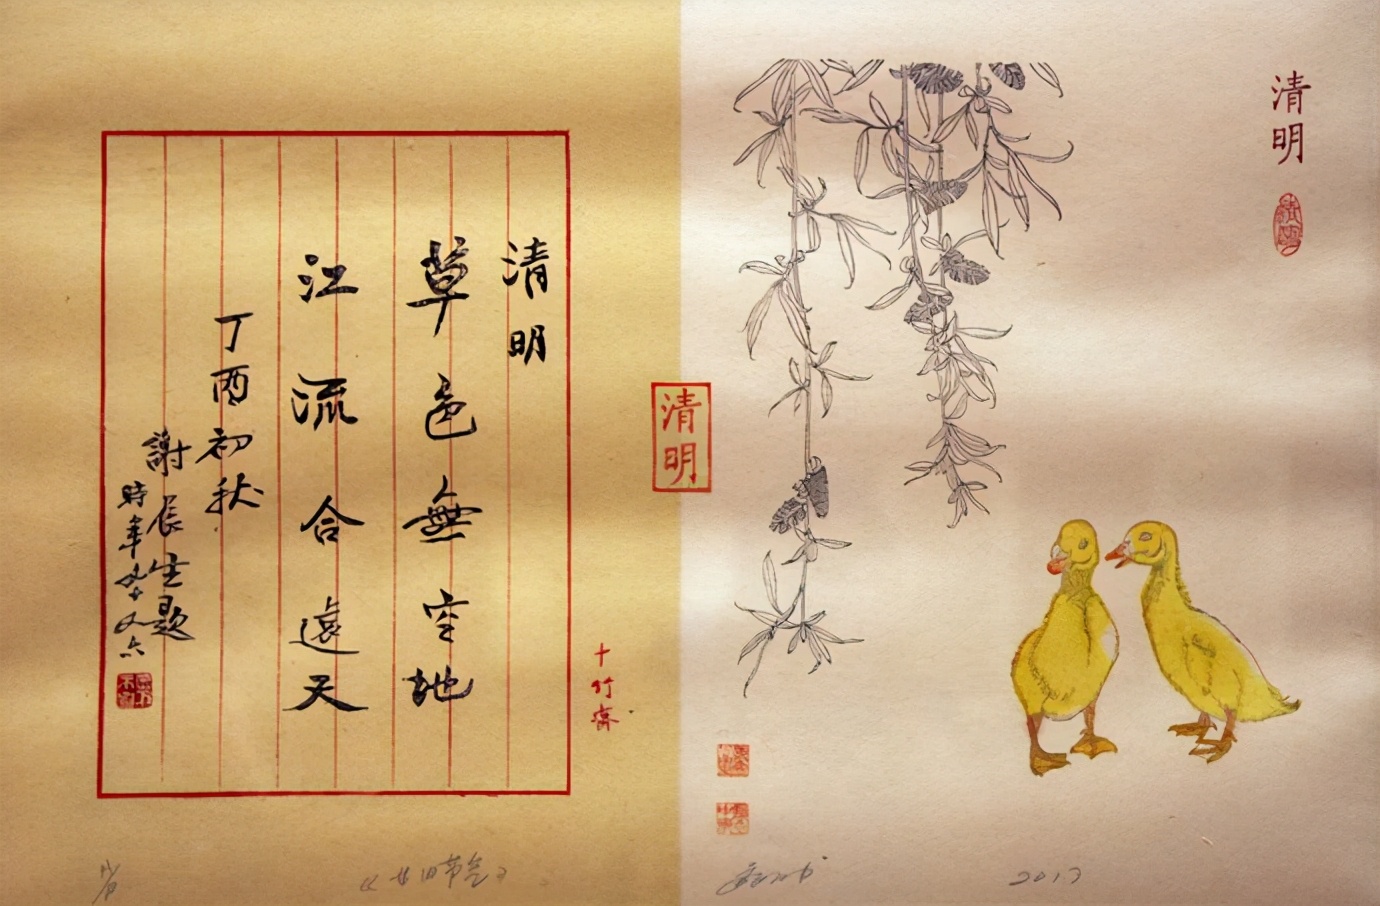 清明
草色無空地
江流合遠天
丁酉初秋
謝辰生題
時年九十又六
十竹齋
清明
清明
《廿四節氣》
2017